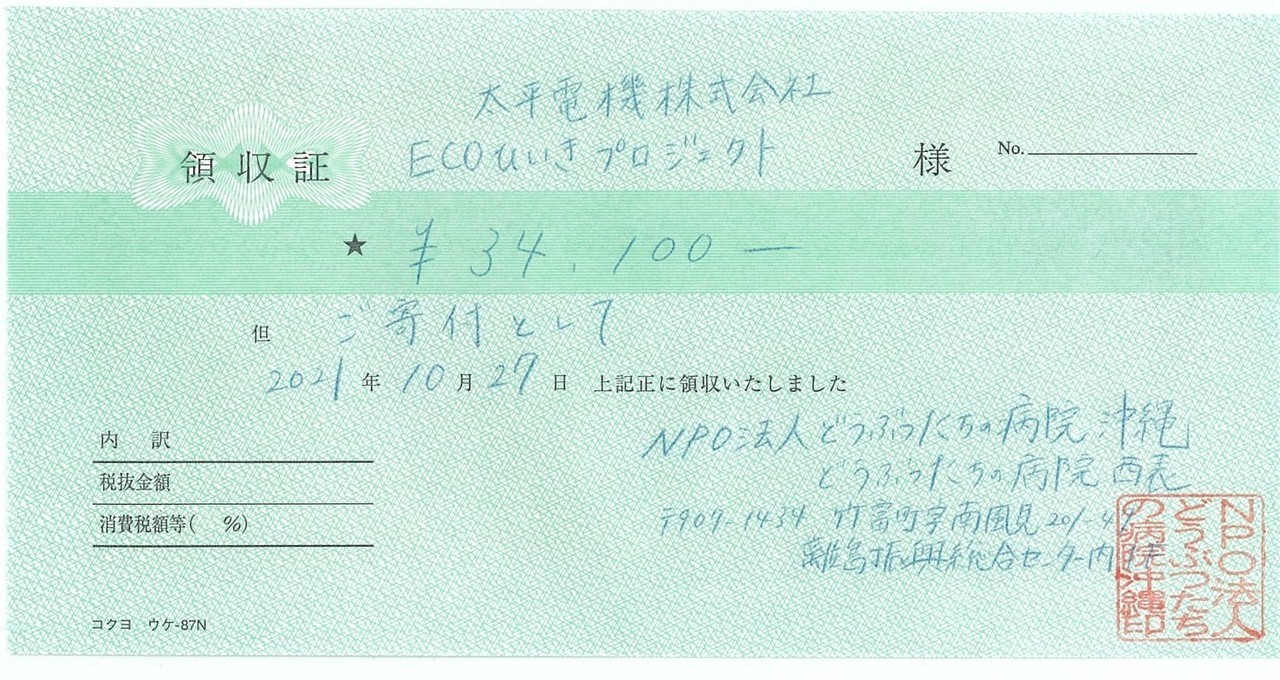 太平電機株式会社
領収証 ECOひいきプロジェクト 様 No.
★ ¥34,100―
但 ご寄付として
2021年10月27日 上記正に領収いたしました
NPO法人どうぶつたちの病院 沖縄
どうぶつたちの病院 西表
〒907-1434 竹富町字南風見201-49
離島振興総合センター内1F
内 訳
税抜金額
消費税額等( %)
コクヨ ウケ-87N
NPO法人
どうぶつたち
の病院沖縄印